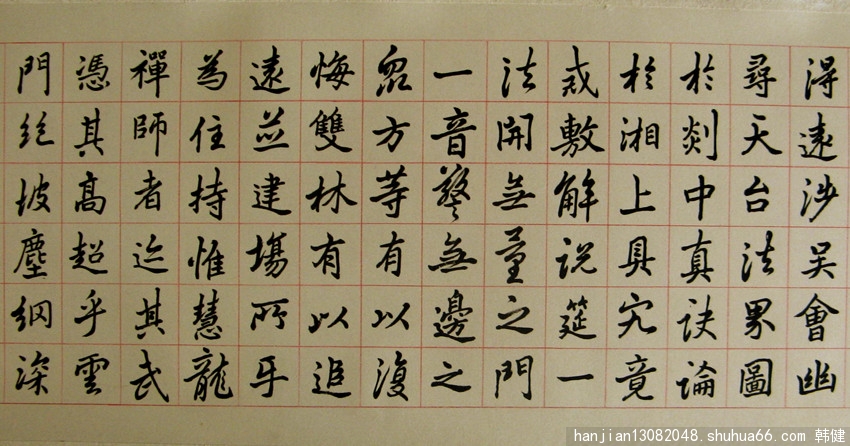 得遠涉吴會幽
尋天台法界圖
於剡中真訣論
於湘上具究竟
戒敷解説筵一
法開無量之門
一音警無邊之
眾方等有以復
悔雙林有以追
遠並建場所牙
為住持惟慧龍
禪師者迩其武
憑其高超乎雲
門絶坡塵網深
hanjian13082048.shuhua66.com 韩健